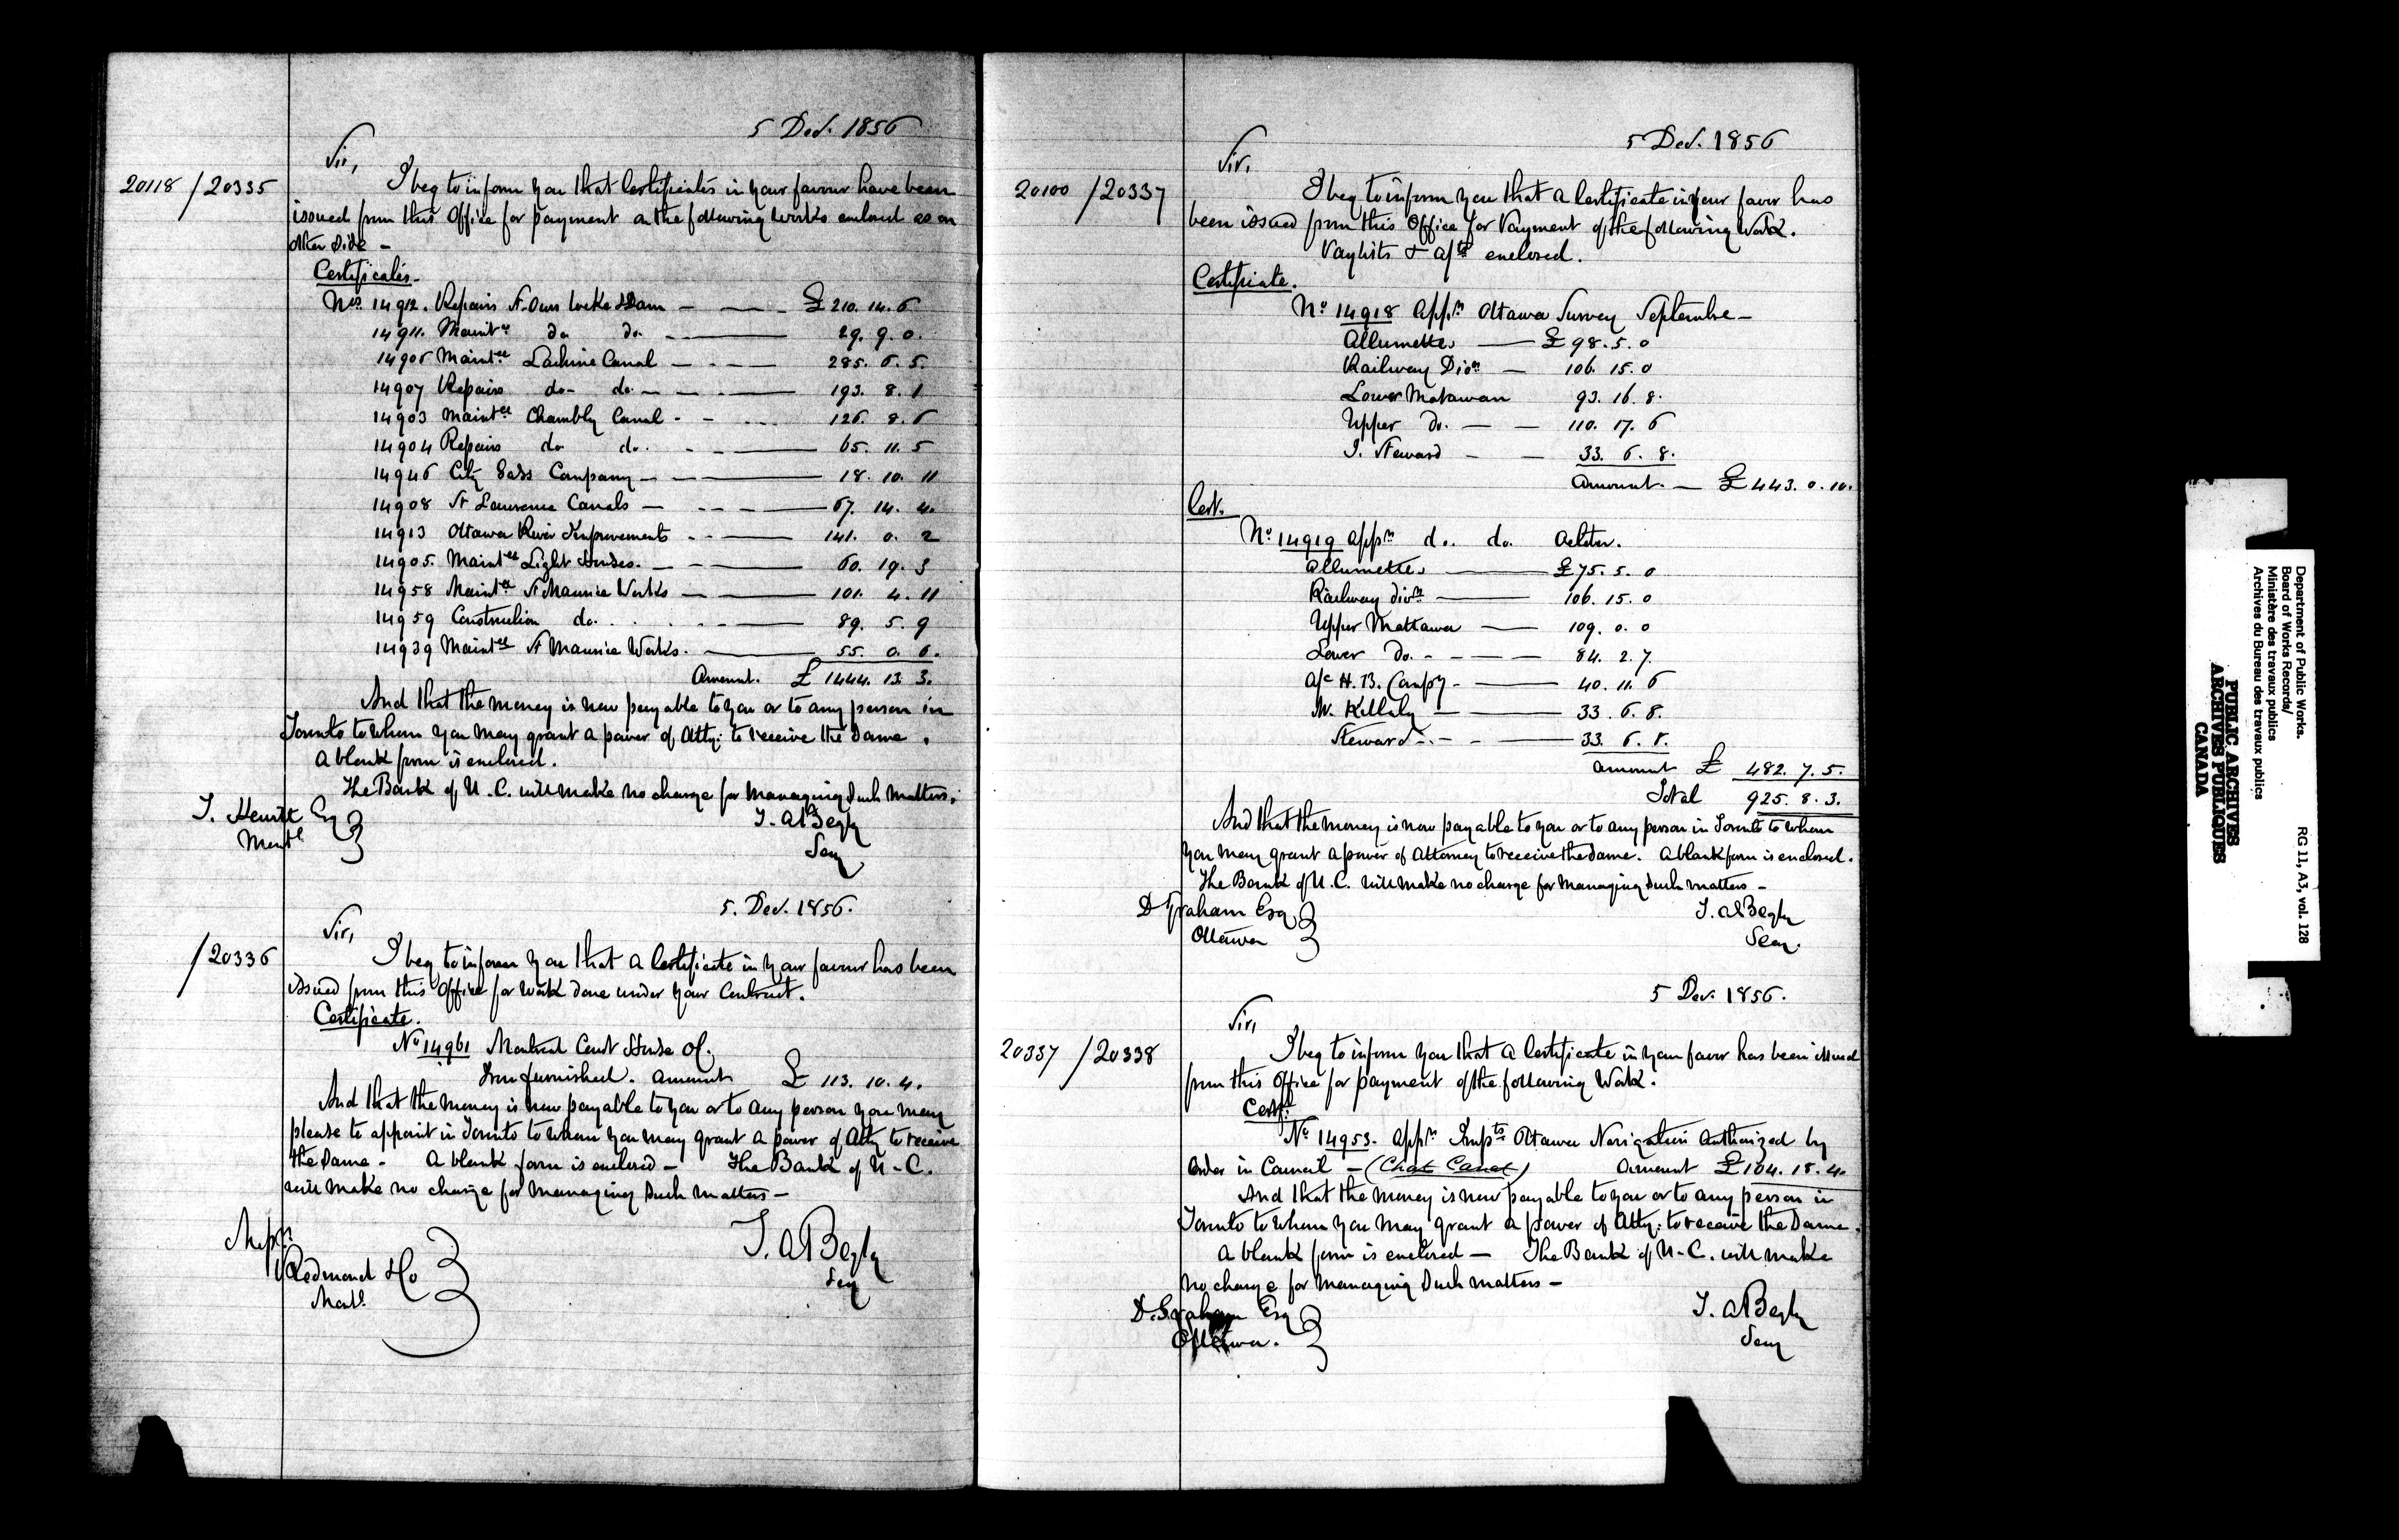 5 Dec. 1856
Sir,
20118 / 20335
I beg to inform you that Certificates in your favour have been
issued from this Office for payment on the following Works enclosed as on
other side -
Certificates.
Nos. 14912. Repairs St. Ours Locks & Dam — £ 210. 14. 6
14911. Maintce do do. — 29. 9. 0.
14906 Maintce Lachine Canal — 285. 6. 5.
14907 Repairs do- do — 193. 8. 1
14903 Maintce Chambly Canal - 126. 8. 6
14904 Repairs do do. — 65. 11. 5
14946 City Gass Company — 18. 10. 11
14908 St Lawrence Canals — 67. 14. 4.
14913 Ottawa River Improvements — 141. 0. 2
14905. Maintce Light Houses. — 60. 19. 3
14958 Maintce St Maurice Works — 101. 4. 11
14959 Construction do. — 89. 5. 9
14939 Maintce St Maurice Works. — 55. 0. 6.
Amount. £ 1444. 13. 3.
And that the money is now payable to you or to any person in
Toronto to whom you may grant a power of Atty. to receive the Same.
A blank form is enclosed.
The Bank of U. C. will make no charge for managing Such matters.
T. A Begly
Secy
Esq
Montl
5. Dec. 1856.
Sir,
/ 20336
I beg to inform you that a Certificate in your favour has been
issued from this Office for Work done under your Contract.
Certificate.
No 14961 Montreal Court House of.
Iron furnished. Amount £ 113. 10. 4.
And that the money is now payable to you or to any person you may
please to appoint in Toronto to whom you may grant a power of Atty to receive
the Same - A blank form is enclosed - The Bank of U-C.
will make no charge for managing Such matters -
T. A Begly
Secy
Redmond & Co
Montl.
5 Dec. 1856
Sir,
20100 / 20337
I beg to inform you that a Certificate in your favor has
been issued from this Office for Payment of the following Work.
Paylists & a/ts enclosed.
Certificate.
No 14918 Appn Ottawa Survey September -
Allumettes — £ 98. 5. 0
Railway Divn — 106. 15. 0
Lower Matawan 93. 16. 8.
Upper do. — 110. 17. 6
J. Steward - 33. 6. 8.
Amount. — £ 443. 0. 10.
Cert.
No 14919 Appn do. do. October.
Allumettes — £ 75. 5. 0
Railway divn — 106. 15. 0
Upper Mattawa — 109. 0. 0
Lower Do. - 84. 2. 7.
a/c H. B. Compy - 40. 11. 6
Killaly — 33. 6. 8.
Steward - 33. 6. 8.
Amount £ 482. 7. 5.
Total 925. 8. 3.
And that the money is now payable to you or to any person in Toronto to whom
you may grant a power of Attorney to receive the Same. A blank form is enclosed.
The Bank of U. C. will make no charge for managing Such matters -
D Graham Esq
Ottawa
T. A Begly
Secy.
5 Dec. 1856.
Sir,
20337 / 20338
I beg to inform you that a Certificate in your favor has been issued
from this Office for payment of the following Work.
Cert.
No 14953. Appn Impts Ottawa Navigation Authorized by
Order in Council - (Chat Canal) Amount £ 104. 18. 4.
And that the money is now payable to you or to any person in
Toronto to whom you may grant a power of Atty. to receive the Same.
A blank form is enclosed - The Bank of U-C. will make
no charge for managing Such matters -
D. Graham Esq
Ottawa.
T. A Begly
Secy
Department of Public Works.
Board of Works Records/
Ministère des travaux publics
Archives du Bureau des travaux publics
RG 11, A3, vol. 128
PUBLIC ARCHIVES
ARCHIVES PUBLIQUES
CANADA